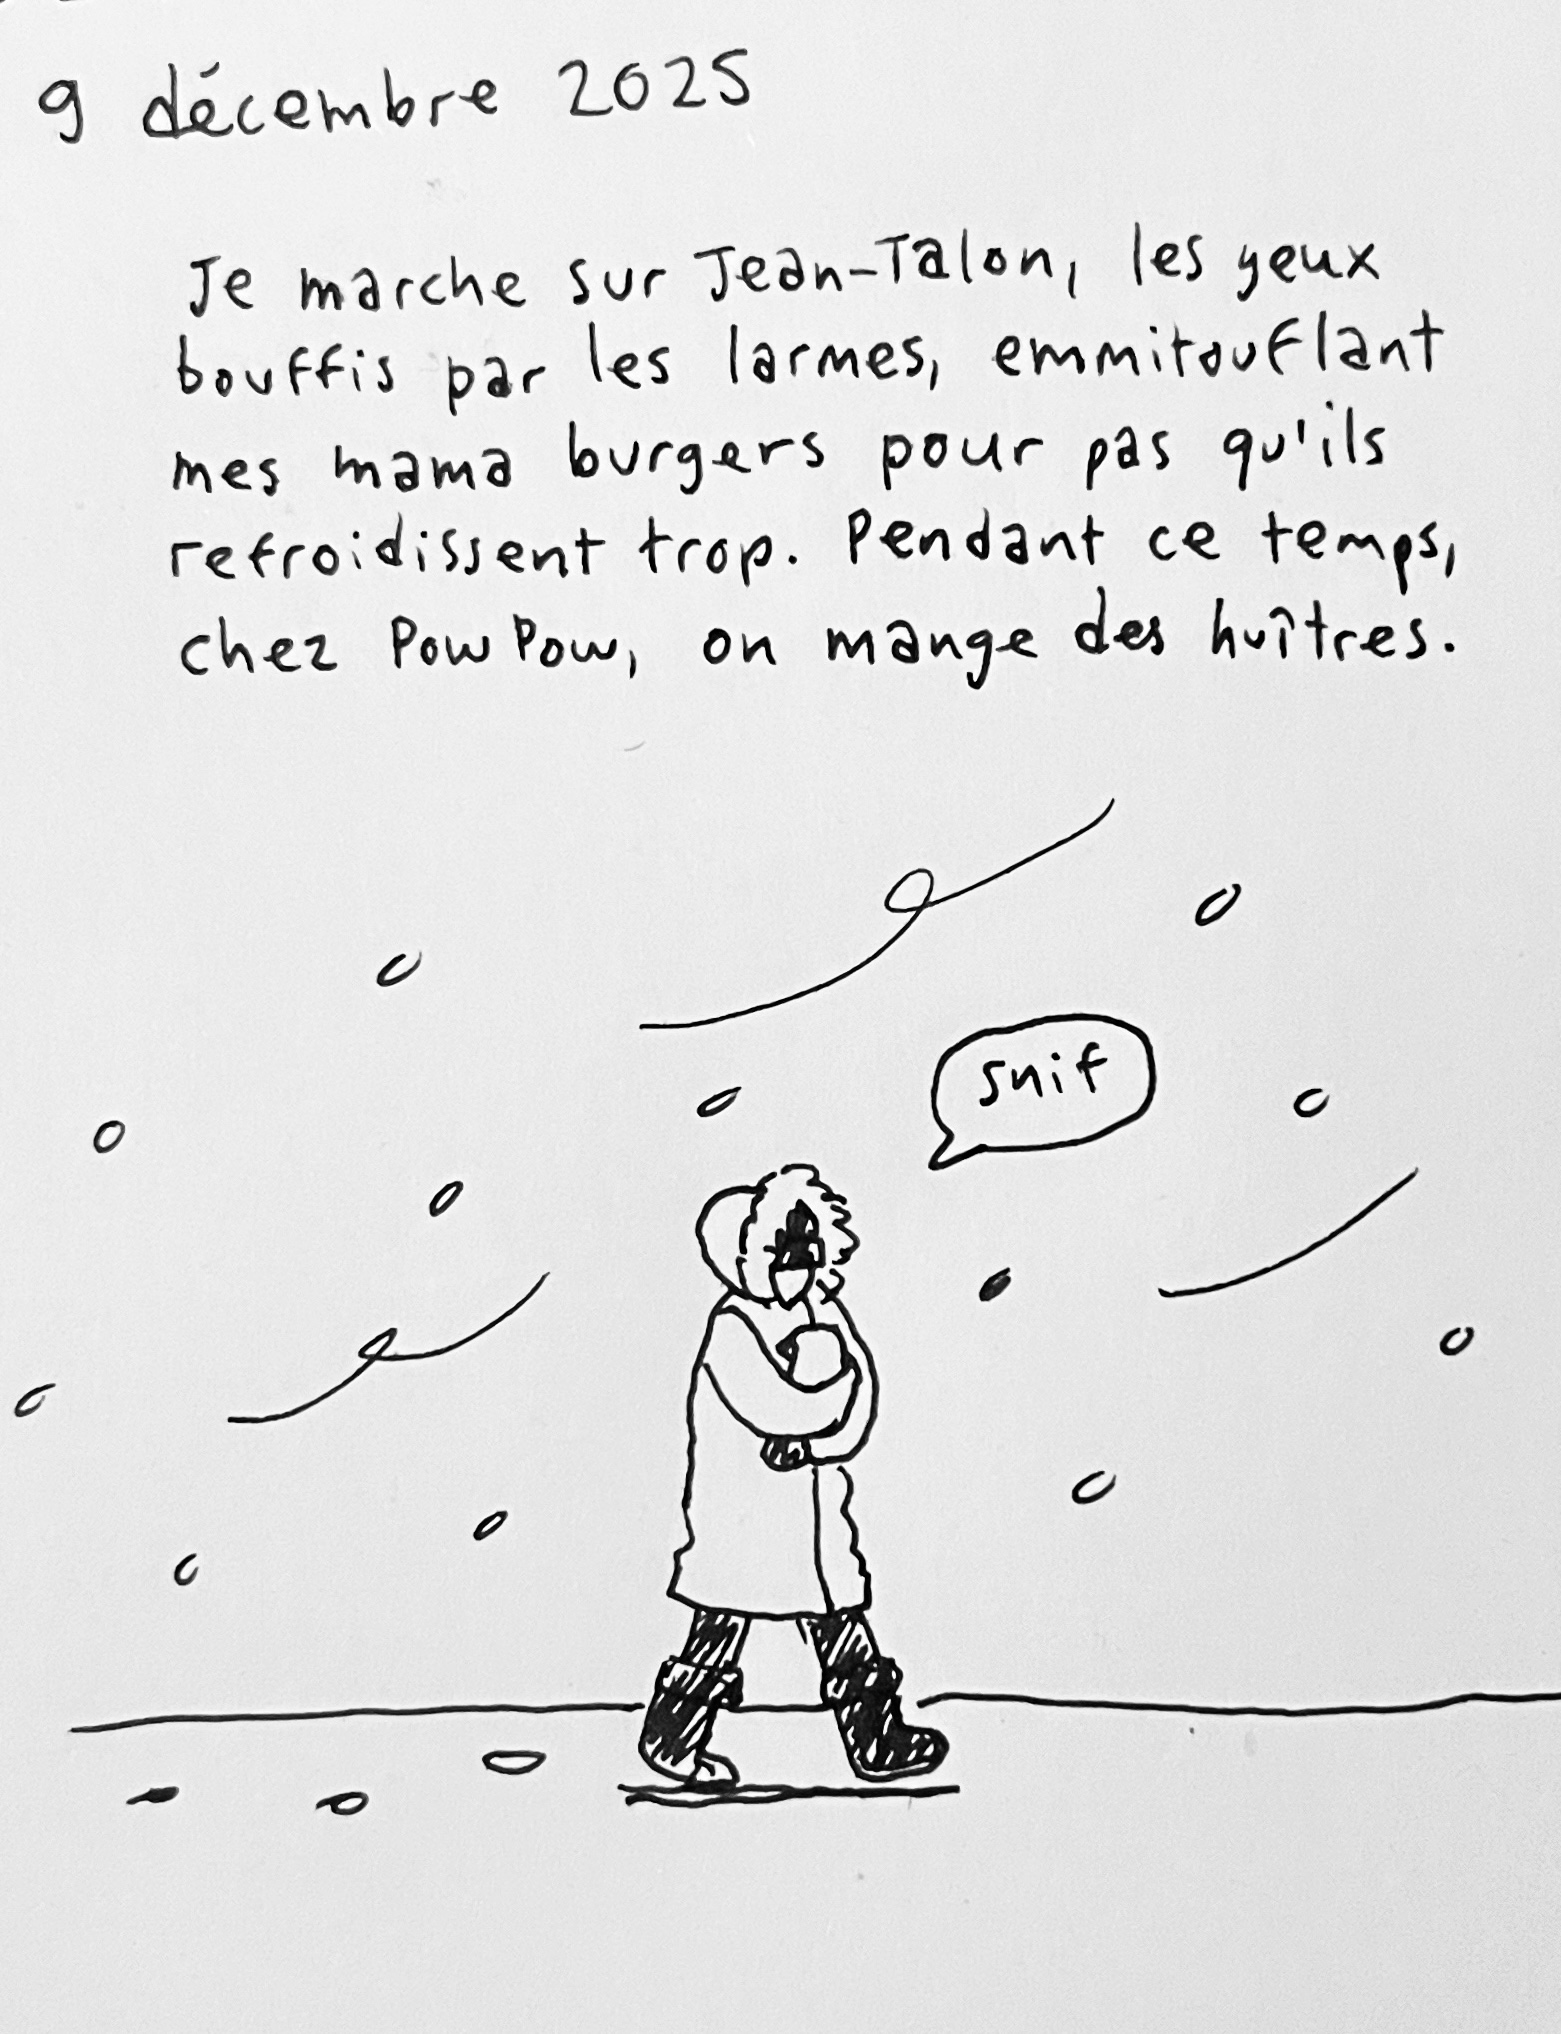 9 décembre 2025
Je marche sur Jean-Talon, les yeux
bouffis par les larmes, emmitouflant
mes mama burgers pour pas qu'ils
refroidissent trop. Pendant ce temps,
chez Pow Pow, on mange des huîtres.
snif